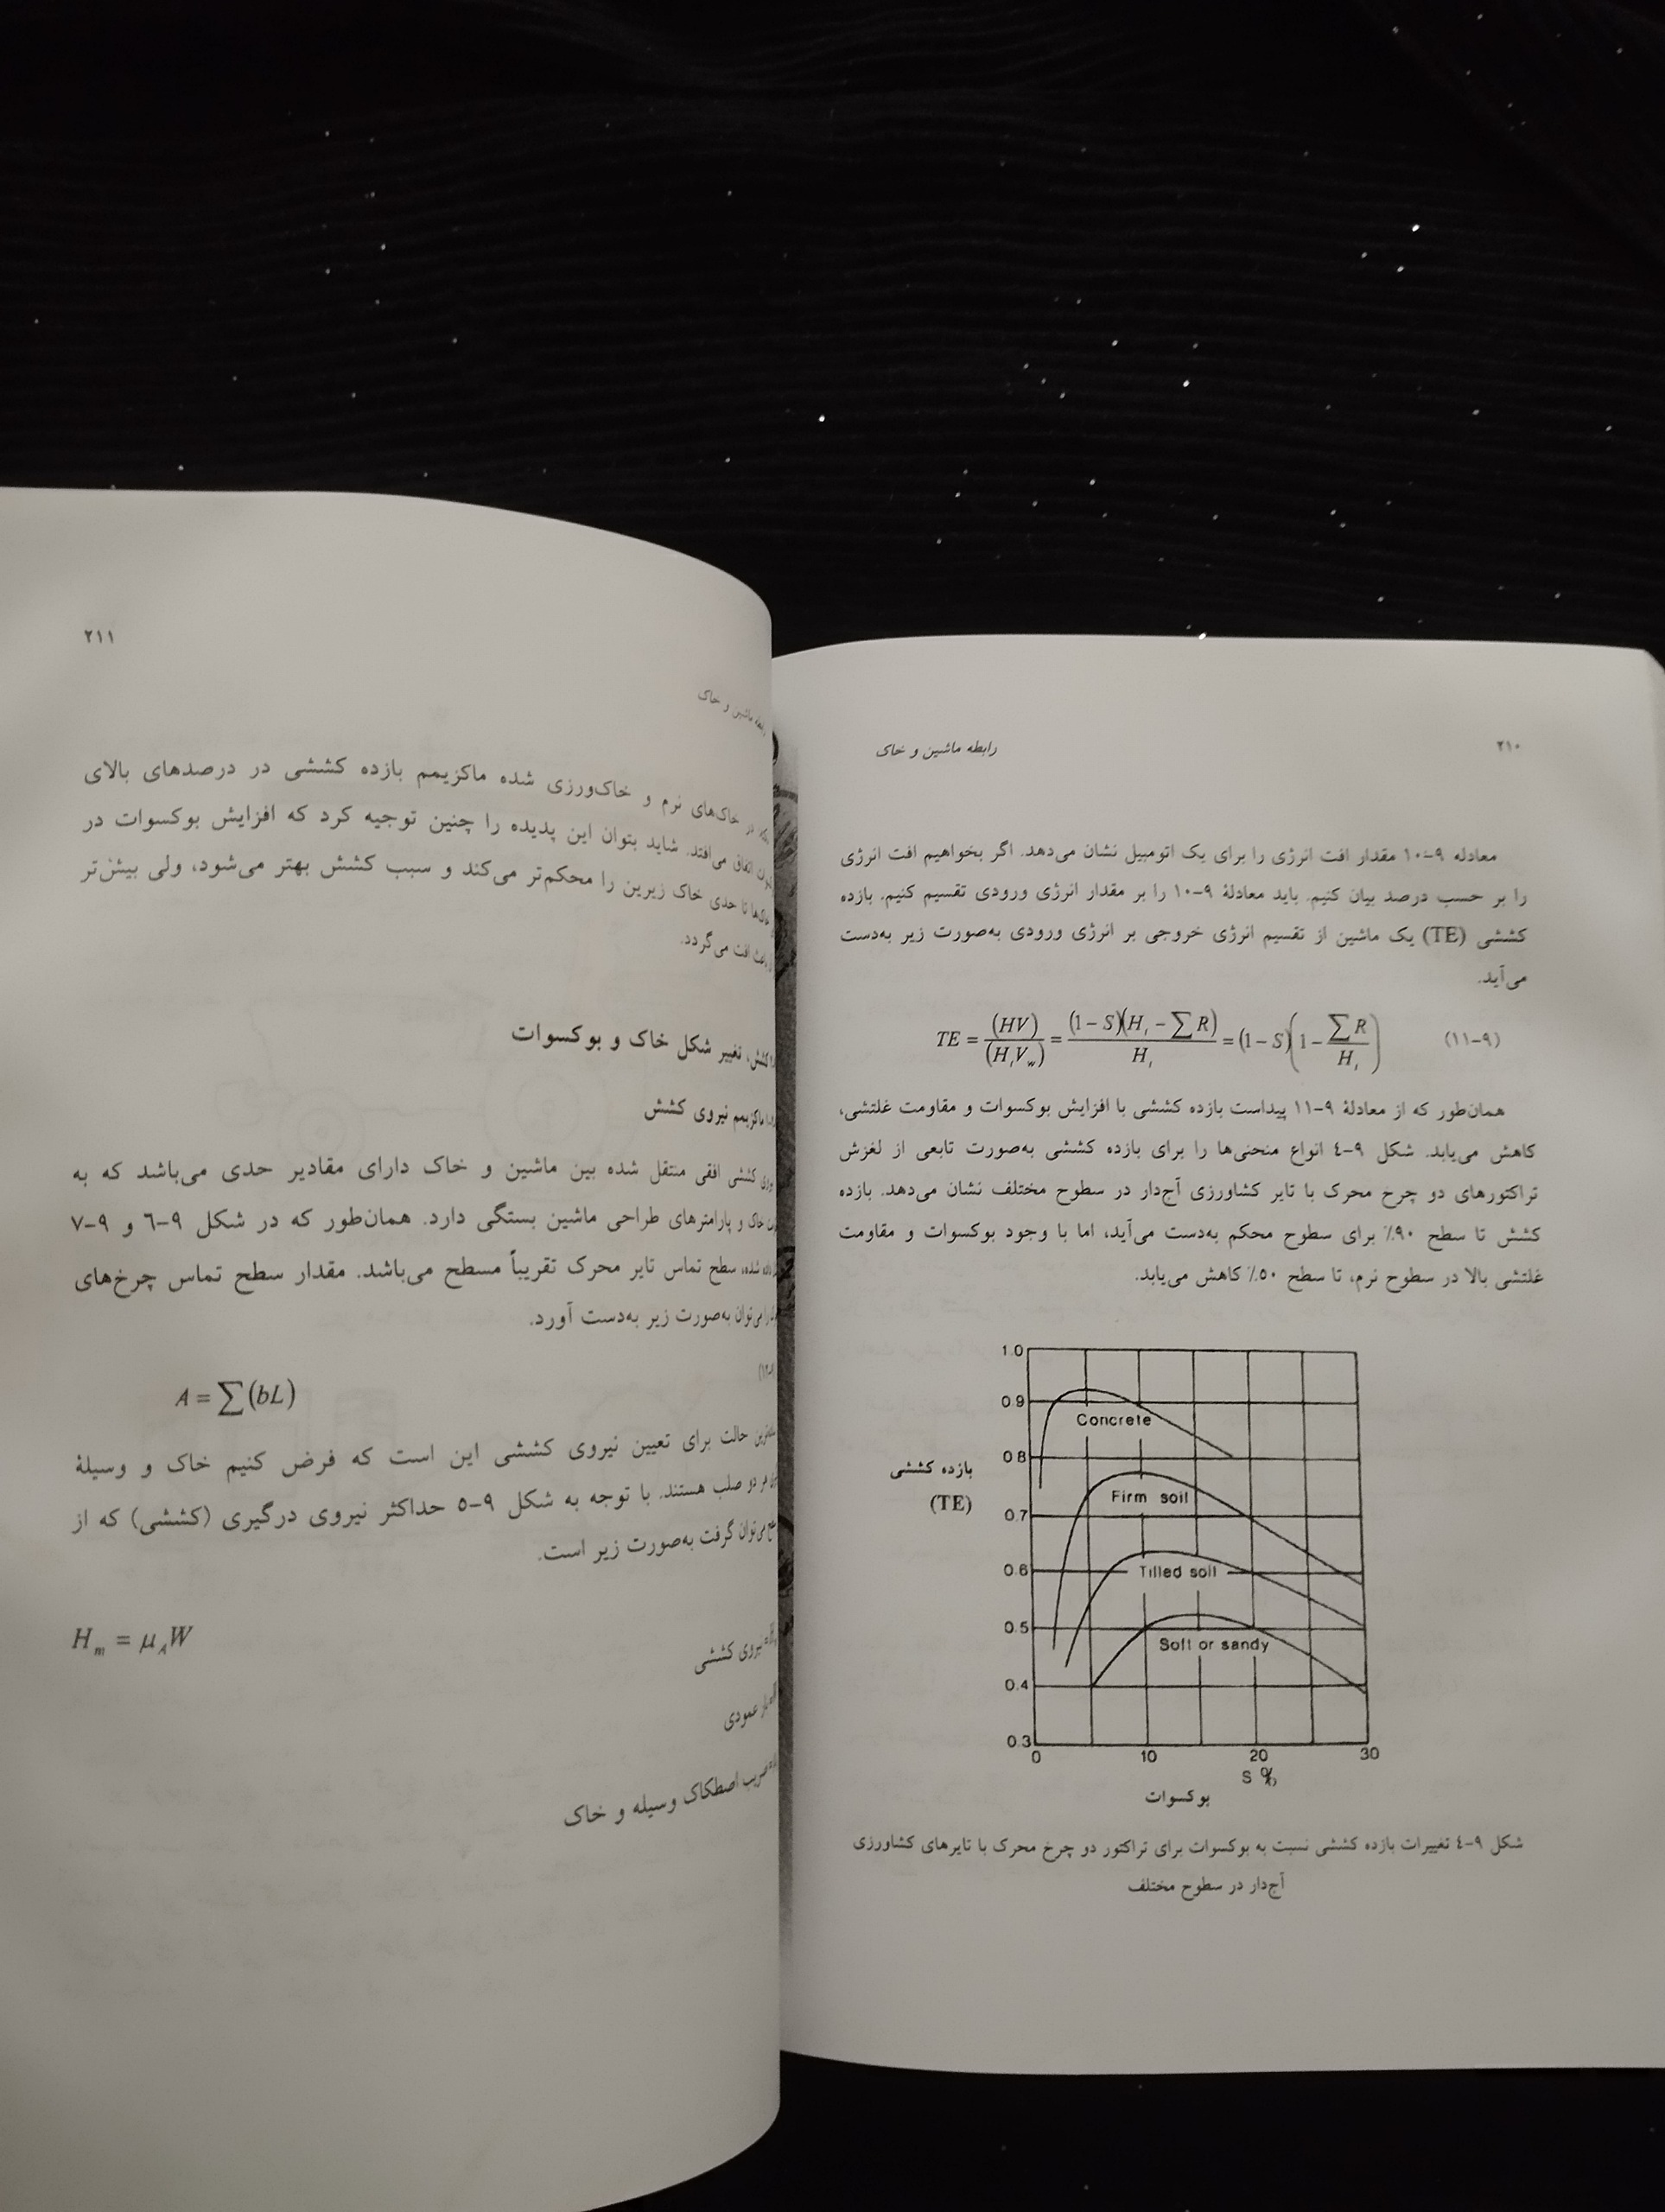 ٢١٠
رابطه ماشین و خاک
معادله ٩-١٠ مقدار افت انرژی را برای یک اتومبیل نشان می‌دهد. اگر بخواهیم افت انرژی
را بر حسب درصد بیان کنیم. باید معادلهٔ ٩-١٠ را بر مقدار انرژی ورودی تقسیم کنیم. بازده
کششی (TE) یک ماشین از تقسیم انرژی خروجی بر انرژی ورودی به‌صورت زیر به‌دست
می‌آید.
(٩-١١) TE = (HV)/(H_t V_w) = (1 − S)(H_t − ∑R)/H_t = (1 − S)(1 − ∑R/H_t)
همان‌طور که از معادلهٔ ٩-١١ پیداست بازده کششی با افزایش بوکسوات و مقاومت غلتشی،
کاهش می‌یابد. شکل ٩-٤ انواع منحنی‌ها را برای بازده کششی به‌صورت تابعی از لغزش
تراکتورهای دو چرخ محرک با تایر کشاورزی آج‌دار در سطوح مختلف نشان می‌دهد. بازده
کشش تا سطح ٩٠٪ برای سطوح محکم به‌دست می‌آید، اما با وجود بوکسوات و مقاومت
غلتشی بالا در سطوح نرم، تا سطح ٥٠٪ کاهش می‌یابد.
1.0
0.9
Concrete
0.8
بازده کششی
(TE)
Firm soil
0.7
0.6
Tilled soil
0.5
Soft or sandy
0.4
0.3
0 10 20 30
S %
بوکسوات
شکل ٩-٤ تغییرات بازده کششی نسبت به بوکسوات برای تراکتور دو چرخ محرک با تایرهای کشاورزی
آج‌دار در سطوح مختلف
٢١١
رابطه ماشین و خاک
در خاک‌های نرم و خاک‌ورزی شده ماکزیمم بازده کششی در درصدهای بالای
اتفاق می‌افتد. شاید بتوان این پدیده را چنین توجیه کرد که افزایش بوکسوات در
تا حدی خاک زیرین را محکم‌تر می‌کند و سبب کشش بهتر می‌شود، ولی بیشتر
افت می‌گردد.
کشش، تغییر شکل خاک و بوکسوات
ماکزیمم نیروی کشش
کششی افقی منتقل شده بین ماشین و خاک دارای مقادیر حدی می‌باشد که به
خاک و پارامترهای طراحی ماشین بستگی دارد. همان‌طور که در شکل ٩-٦ و ٩-٧
شده، سطح تماس تایر محرک تقریباً مسطح می‌باشد. مقدار سطح تماس چرخ‌های
را می‌توان به‌صورت زیر به‌دست آورد.
A = ∑(bL)
حالت برای تعیین نیروی کششی این است که فرض کنیم خاک و وسیلهٔ
هر دو صلب هستند. با توجه به شکل ٩-٥ حداکثر نیروی درگیری (کششی) که از
می‌توان گرفت به‌صورت زیر است.
H_m = μ_A W
نیروی کششی
بار عمودی
ضریب اصطکاک وسیله و خاک